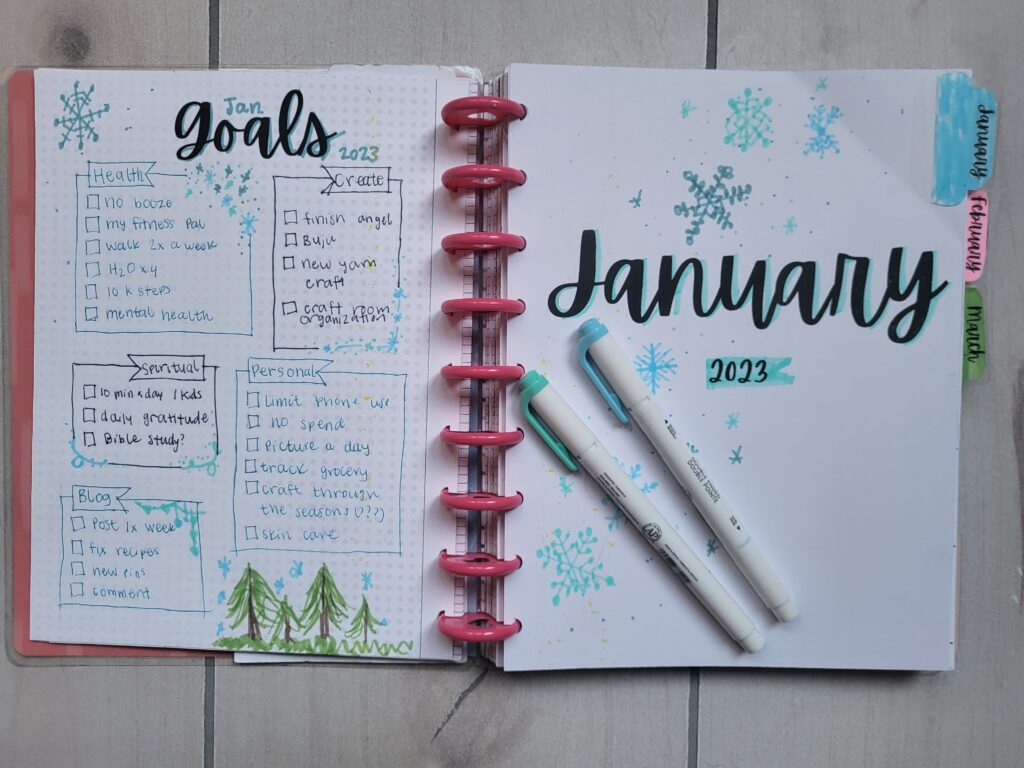 Jan
goals
2023
Health
no booze
my fitness pal
walk 2x a week
H2O x 4
10 K steps
mental health
Create
finish angel
Buju
new yarn
craft
craft room
organization
Spiritual
10 min a day / kids
daily gratitude
Bible study?
Personal
limit phone use
no spend
picture a day
track grocery
craft through
the seasons (???)
skin care
Blog
Post 1x week
fix recipes
new pins
comment
January
2023
January
february
March
DOUBLE ENDED
DOUBLE POINTE
AP